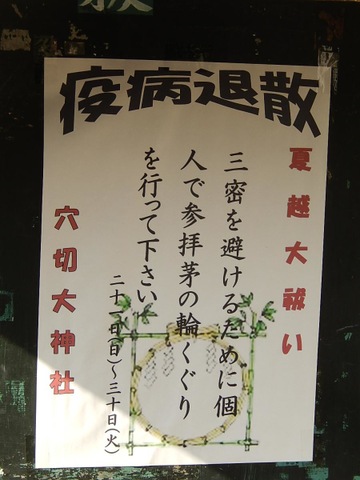 疫病退散
夏越大祓い
三密を避けるために個
人で参拝茅の輪くぐり
を行って下さい
二十一日(日)～三十日(火)
穴切大神社